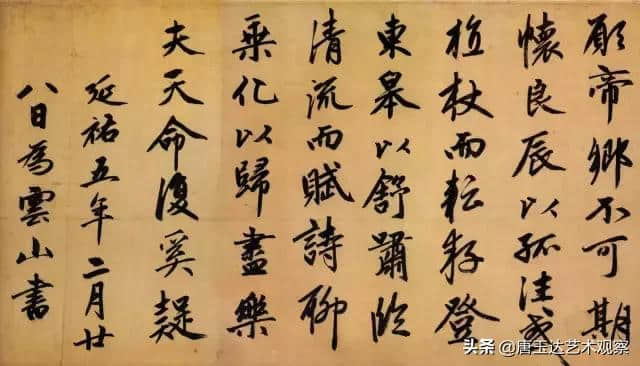 願帝鄉不可期
懷良辰以孤往或
植杖而耘耔登
東皋以舒嘯臨
清流而賦詩聊
乘化以歸盡樂
夫天命復奚疑
延祐五年二月廿
八日為雲山書
头条 @唐玉达艺术观察